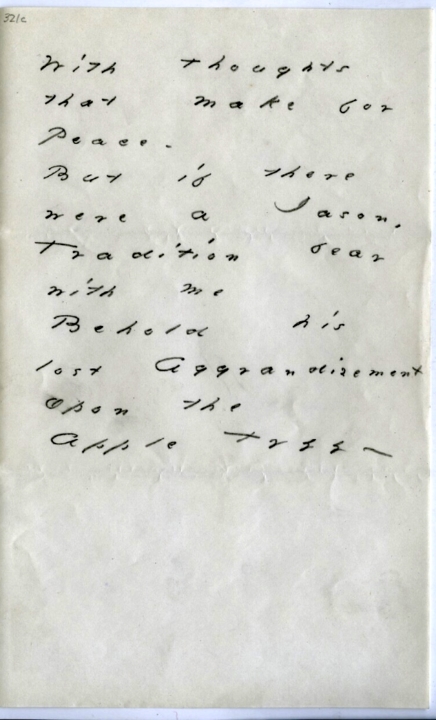 321c
With thoughts
that make for
Peace -
But if there
were a Jason,
Tradition bear
with me
Behold his
lost Aggrandizement
Opon the
Apple Tree -